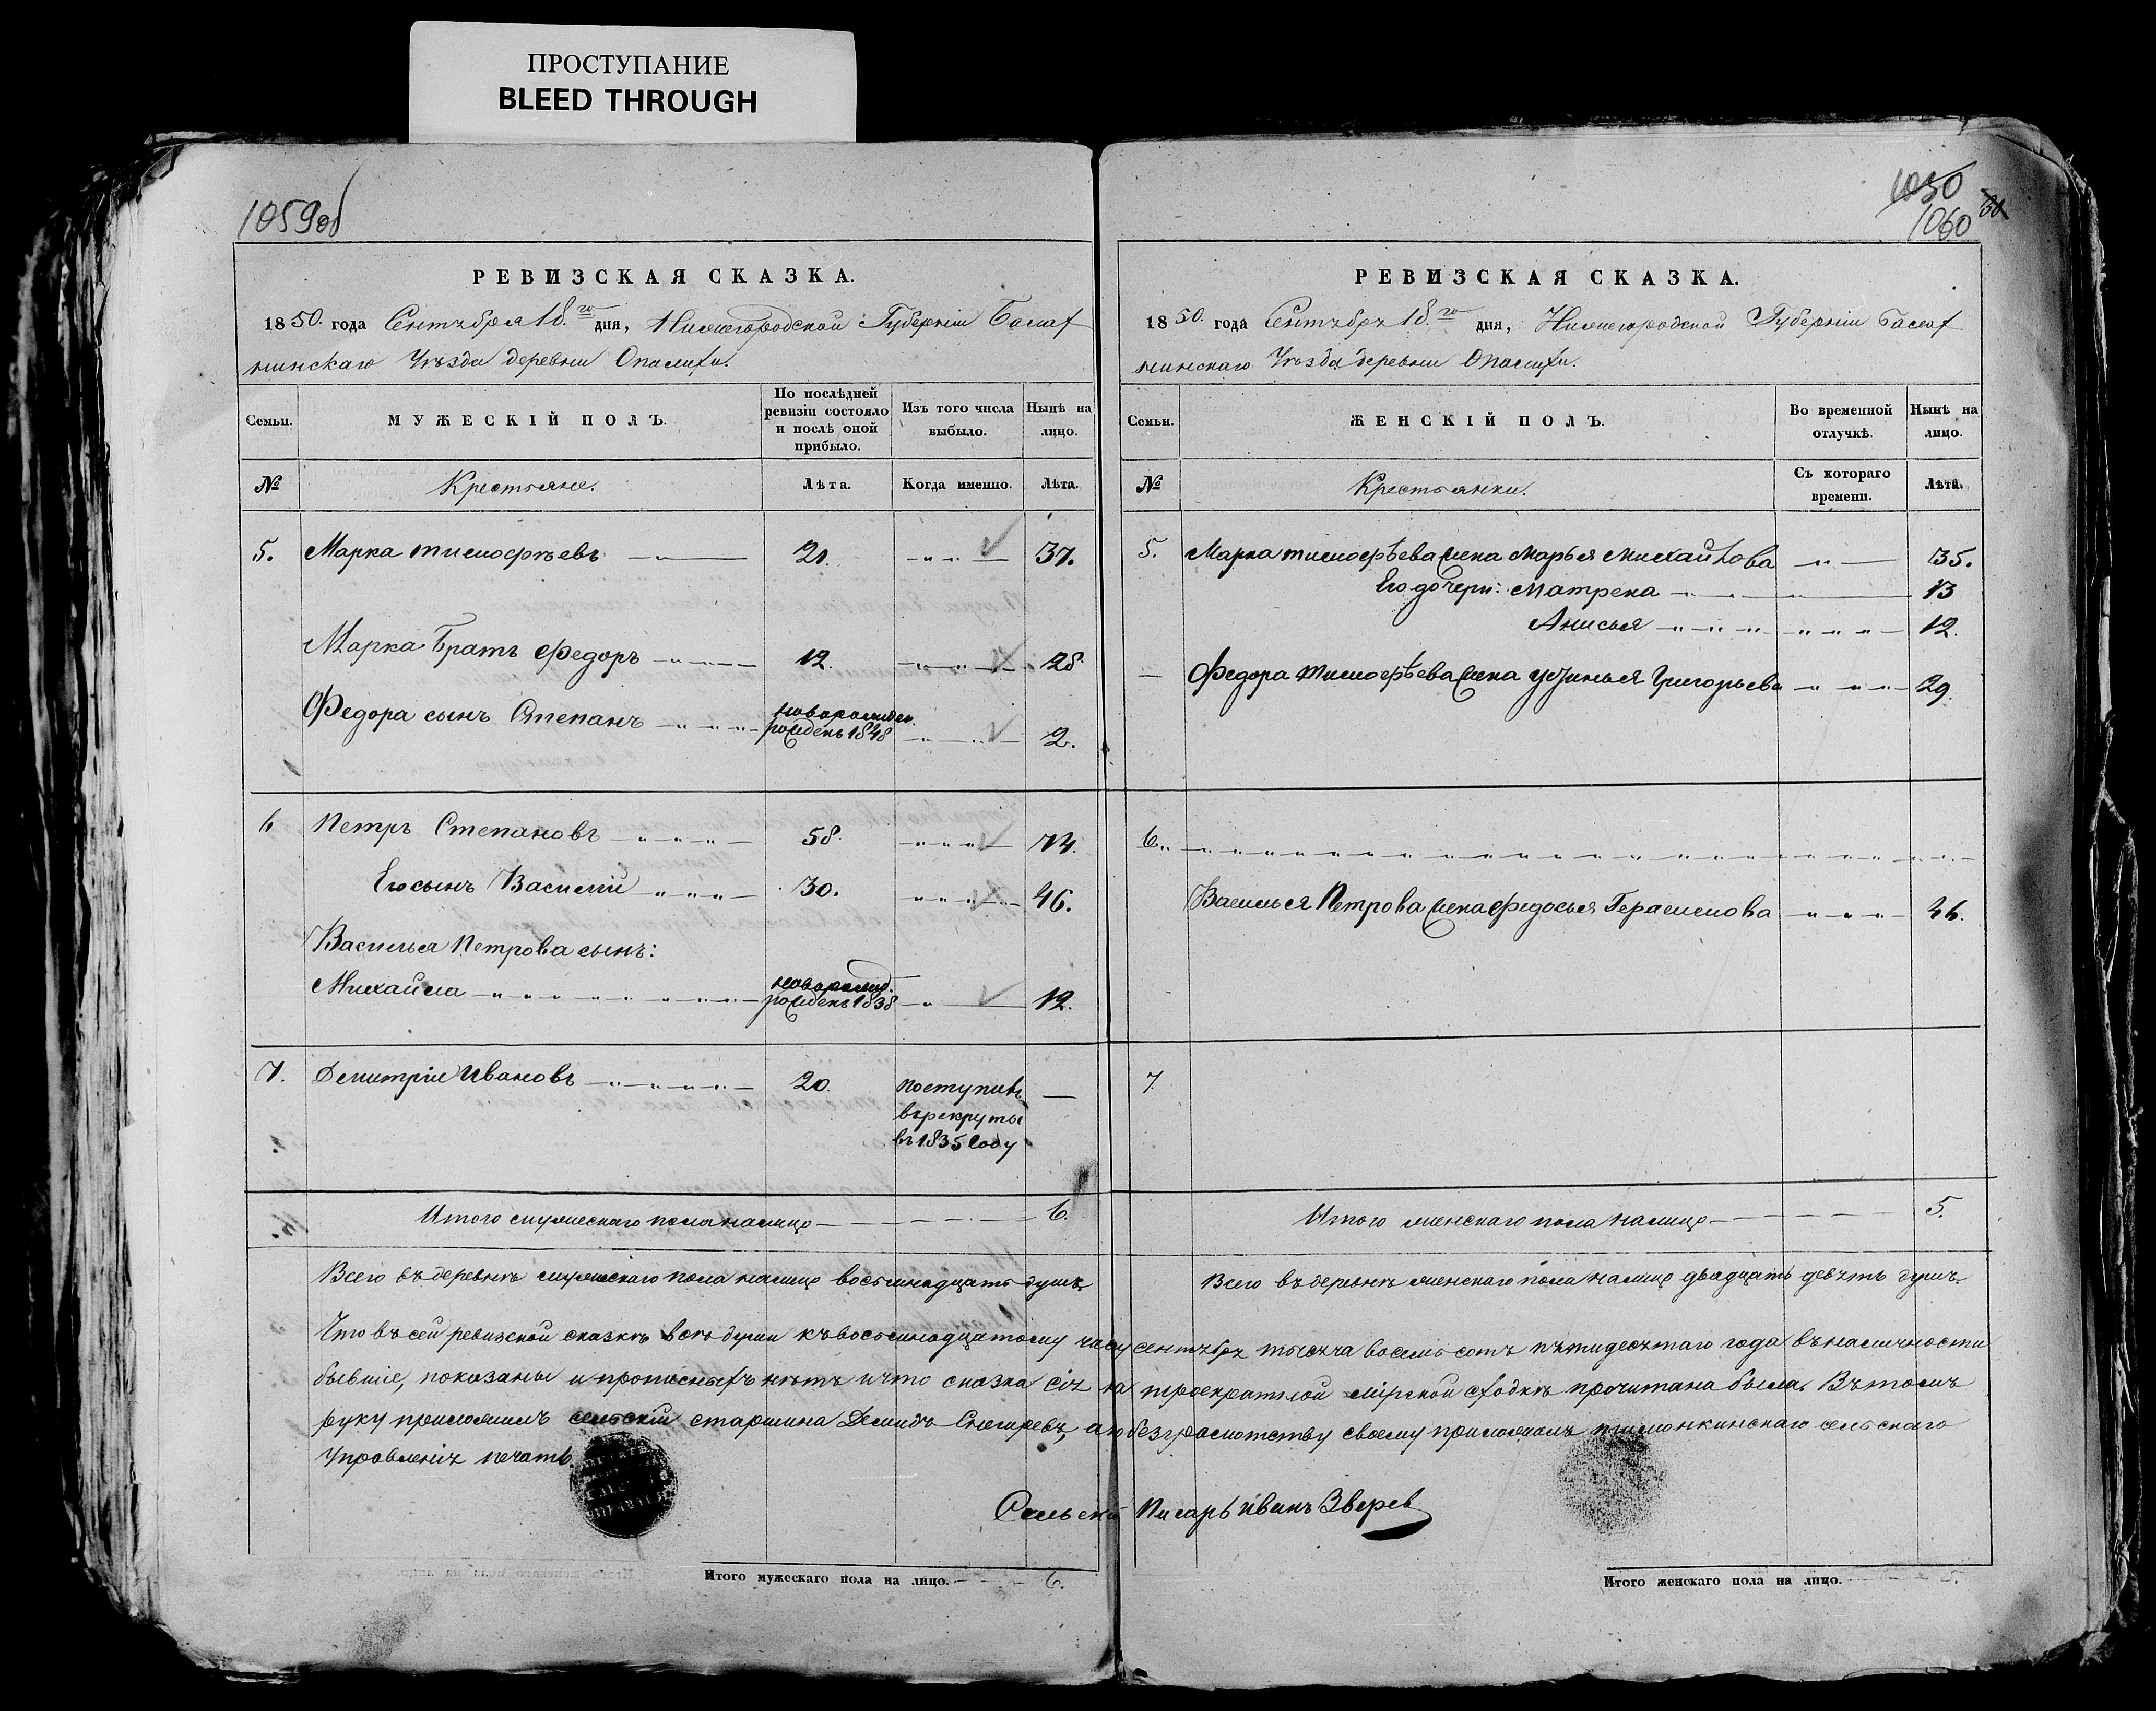 ПРОСТУПАНИЕ
BLEED THROUGH
1059об
РЕВИЗСКАЯ СКАЗКА.
1850. года Сентября 18.го дня, Нижегородской Губерніи Балах
нинскаго Уѣзда деревни Опалихи.
Семьи.
МУЖЕСКІЙ ПОЛЪ.
По послѣдней
ревизіи состояло
и послѣ оной
прибыло.
Изъ того числа
выбыло.
Нынѣ на
лицо.
№
Крестьяне.
Лѣта.
Когда именно.
Лѣта.
5. Марка тимофѣевъ 21. 37.
Марка Братъ Федоръ 12. 28.
Федора сынъ Степанъ
новорожден.
рожденъ 1848 2.
6 Петръ Степановъ 58. 74.
Его сынъ Василій 30. 46.
Василья Петрова сынъ:
Михайла
новорожд.
рожденъ 1838 12.
7. Демитріи Ивановъ 20. поступилъ
въ рекруты
въ 1835 году
Итого мужескаго пола налицо 6.
Всего въ деревнѣ мужескаго пола налицо восьмнадцать душъ
1030
1060
РЕВИЗСКАЯ СКАЗКА.
1850. года Сентября 18.го дня, Нижегородской Губерніи Балах
нинскаго Уѣзда деревни Опалихи.
Семьи.
ЖЕНСКІЙ ПОЛЪ.
Во временной
отлучкѣ.
Нынѣ на
лицо.
№
Крестьянки.
Съ котораго
времени.
Лѣта.
5. Марка тимофѣева жена Марья Михайлова 35.
Его дочери: Матрена 13
Анисья 12.
Федора тимофѣева жена Устинья Григорьева 29.
6.
Василья Петрова жена Федосья Герасимова 46.
7.
Итого женскаго пола налицо 5.
Всего въ деревнѣ женскаго пола налицо двадцать девять душъ
Что въ сей ревизской сказкѣ всѣ души къ восьмнадцатому числу сентября тысяча восемь сотъ пятидесятаго года въ наличности
бывшіе, показаны и прописныхъ нѣтъ и что сказка сія на троекратной мірской сходкѣ прочитана была. Въ томъ
руку приложилъ сельскій старшина Демидъ Снегиревъ, а по безграмотству своему приложилъ сельскаго
Управленія печать.
Сельскій Писарь Иванъ Зверев
Итого мужескаго пола на лицо. 6.
Итого женскаго пола на лицо. 5.